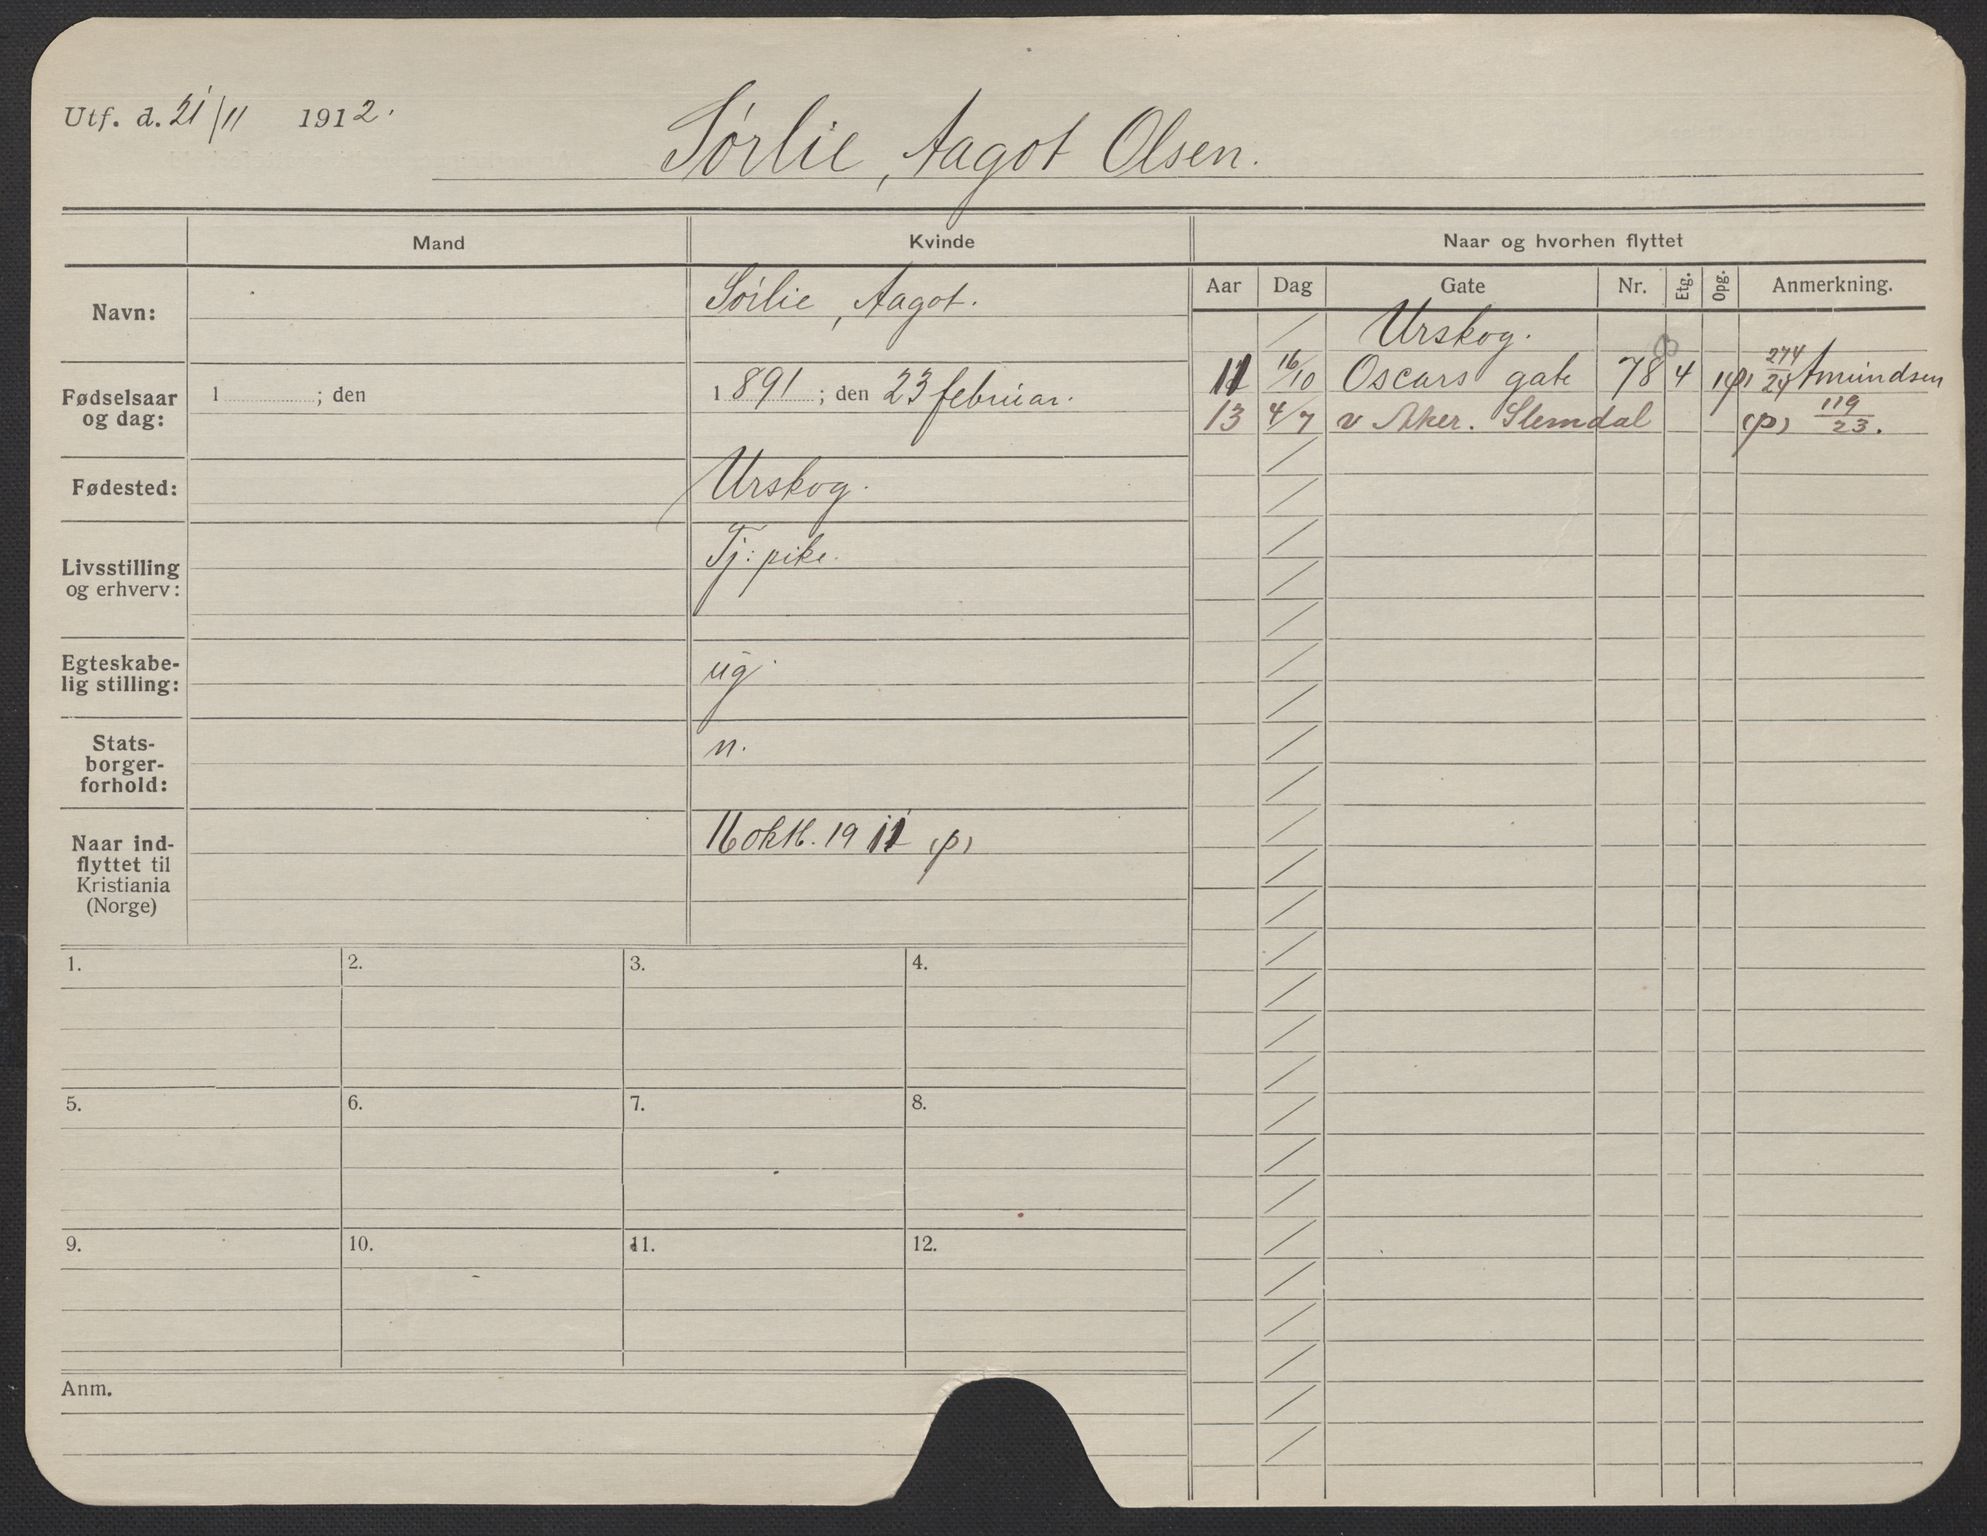 Utf. d. 21/11 1912.
Sørlie, Aagot Olsen.
Mand
Kvinde
Naar og hvorhen flyttet
Aar Dag Gate Nr. Etg. Opg. Anmerkning.
Navn:
Sørlie, Aagot.
Urskog.
11 16/10 Oscars gate 78 4 (p) 274/24 Amundsen
13 4/7 v Aker. Slemdal (p) 119/23.
Fødselsaar
og dag:
1 ; den
1 891 ; den 23 februar.
Fødested:
Urskog.
Livsstilling
og erhverv:
Tj: pike.
Egteskabe-
lig stilling:
ug.
Stats-
borger-
forhold:
n.
Naar ind-
flyttet til
Kristiania
(Norge)
16 okt. 19 11 (p)
1. 2. 3. 4.
5. 6. 7. 8.
9. 10. 11. 12.
Anm.